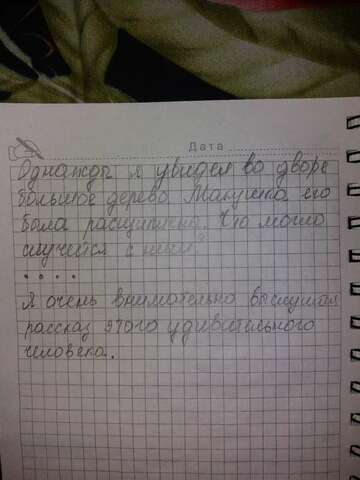 Дата
Однажды я увидел во дворе
большое дерево. Макушка его
была расщиплена. Что могло
случейтся с ним?
. . . .
Я очень внимательно выслушал
рассказ этого удивительного
человека.